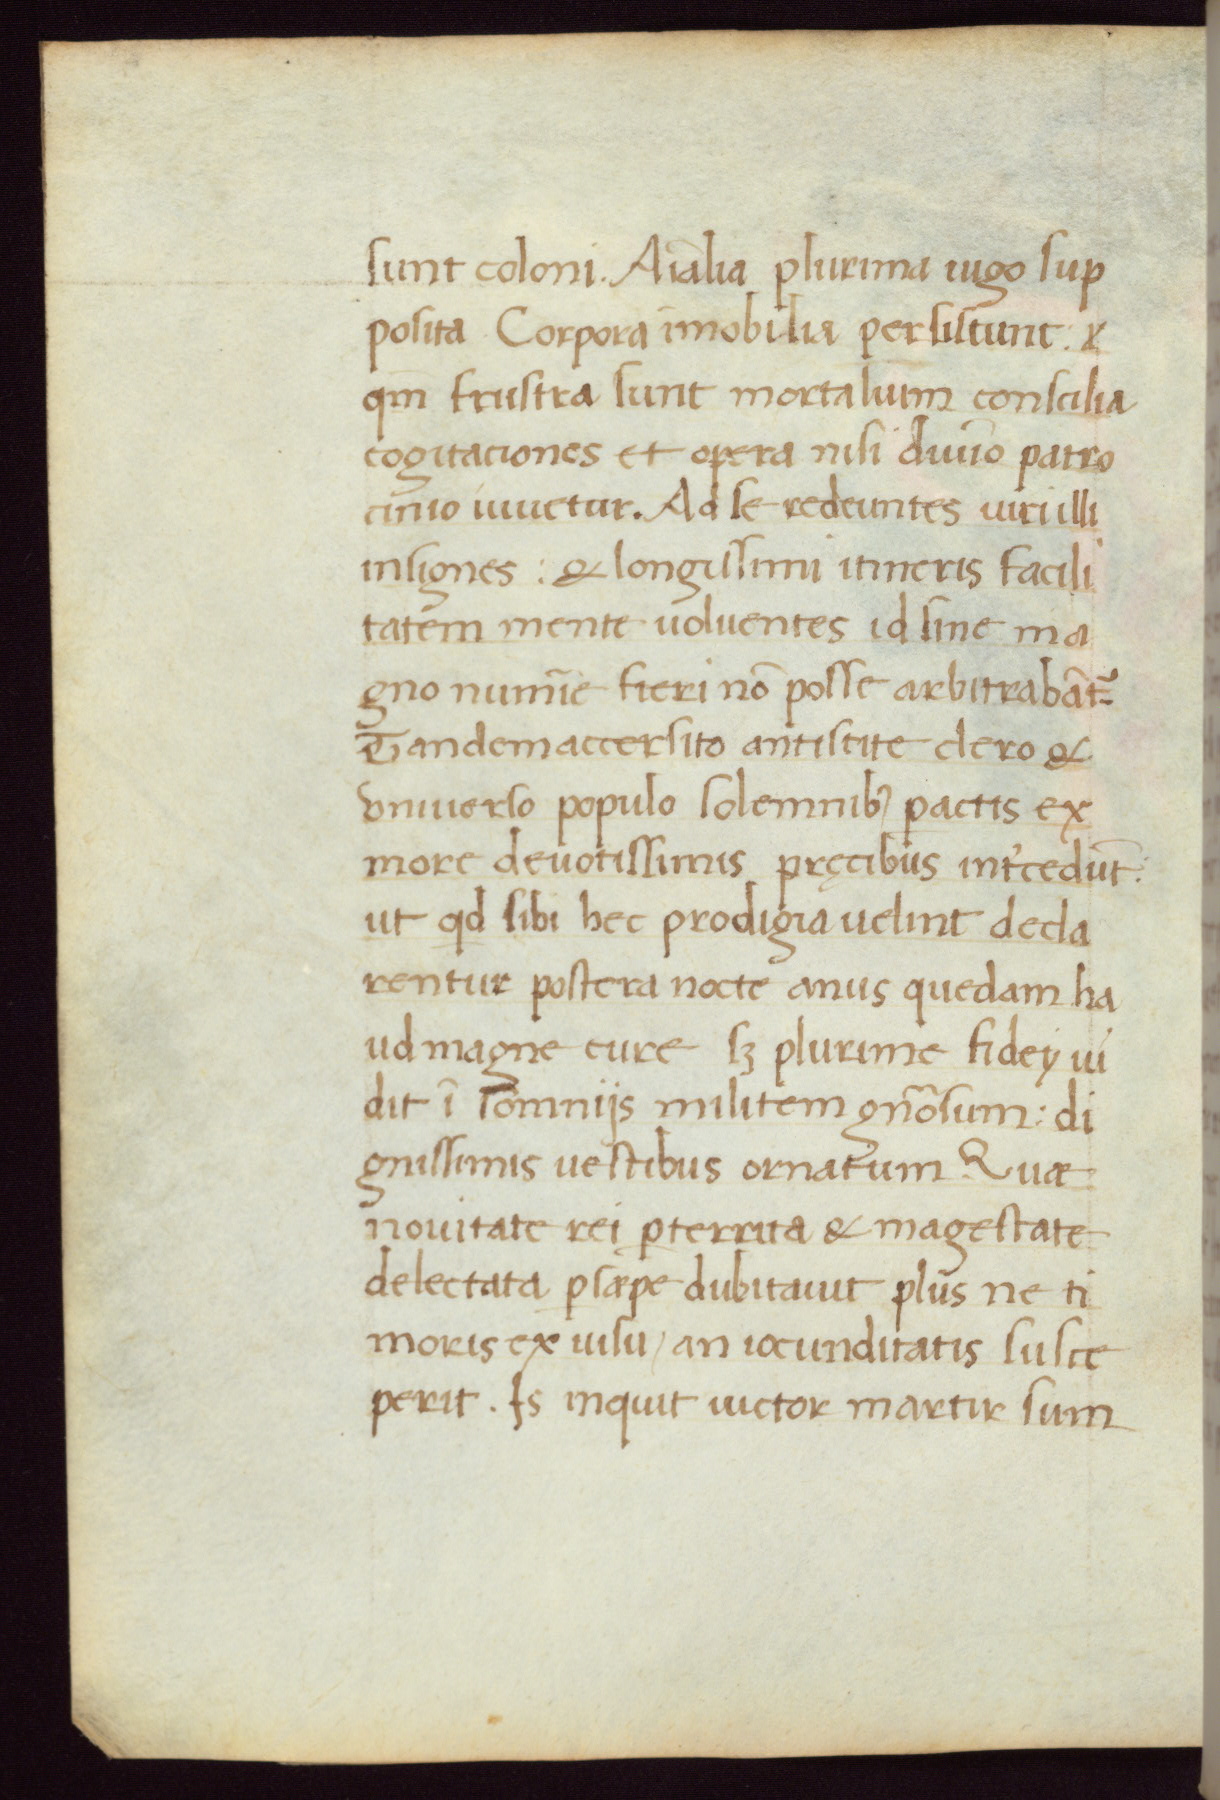 sunt coloni. Aīalia plurima iugo sup
posita Corpora īmobilia persistunt: &
qm̄ frustra sunt mortalium conscilia
cogitaciones et opera nisi diuīo patro
cinio iuuetur. Ad se redeuntes uiri illi
insignes: & longissimi itineris facili
tatem mente uoluentes id sine ma
gno numīe fieri nō posse arbitrabāt᷑
Tandem accersito antistite clero &
vniuerso populo solemnibꝰ pactis ex
more deuotissimis pręcibus int̛cedūt:
ut qd sibi hec prodigia uelint decla
rentur postera nocte anus quedam ha
ud magne cure sꝫ plurime fidey ui
dit ī somnijs militem gn̄osum: di
gnissimis uestibus ornatum Quæ
nouitate rei ꝑterrita & magestate
delectata ꝑsæpe dubitauit plus ne ti
moris ex uisu / an iocunditatis susce
perit. Is inquit uictor martir sum